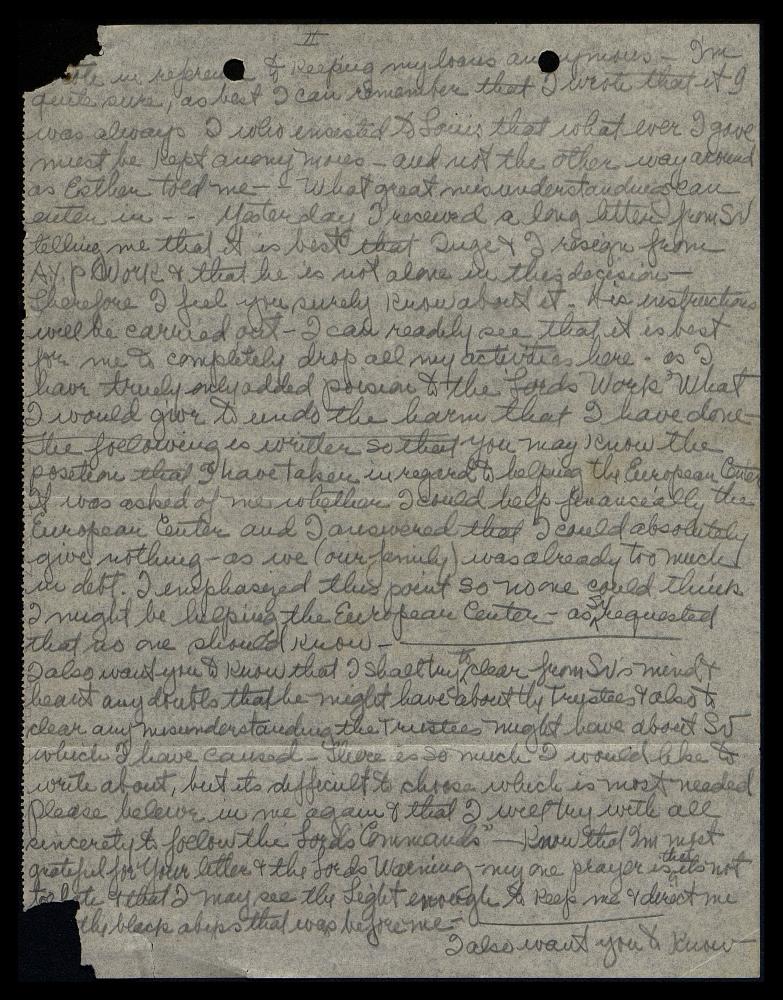 II
wrote in reference to keeping my loans anonymous - I'm
quite sure, as best I can remember that I wrote that it
was always I who ensested to Louis that what ever I gave
must be kept anonymoues - and not the other way around
as Esther told me - - What great misunderstandings can
enter in - - Yesterday I received a long letter from SV
telling me that it is best that Inge & I resign from
A.Y.P. Work & that he is not alone in this decision -
Therefore I feel you surely know about it. His instructions
will be carried out - I can readily see that it is best
for me to completely drop all my activities here - as I
have truely only added poision to the "Lords Work" What
I would give to undo the harm that I have done -
The following is written so that you may know the
position that I have taken in regard to helping the European Center
It was asked of me whether I could help financially the
European Center and I answered that I could absolutely
give nothing - as we (our family) was already too much
in debt. I emphasized this point so no one could think
I might be helping the European Center - as SV requested
that no one should know -
I also want you to know that I shall try to clear from SV's mind &
heart any doubts that he might have about the Trustees & also to
clear any misunderstanding the Trustees might have about SV
which I have caused - There is so much I would like to
write about, but its difficult to choose which is most needed
Please believe in me again & that I will try with all
sincerety to follow the Lords "Commands" - Know that I'm most
grateful for Your letter & the Lords Warning - my one prayer is that its not
too late & that I may see the Light enough to keep me & direct me
the black abiss that was before me -
I also want you to know -